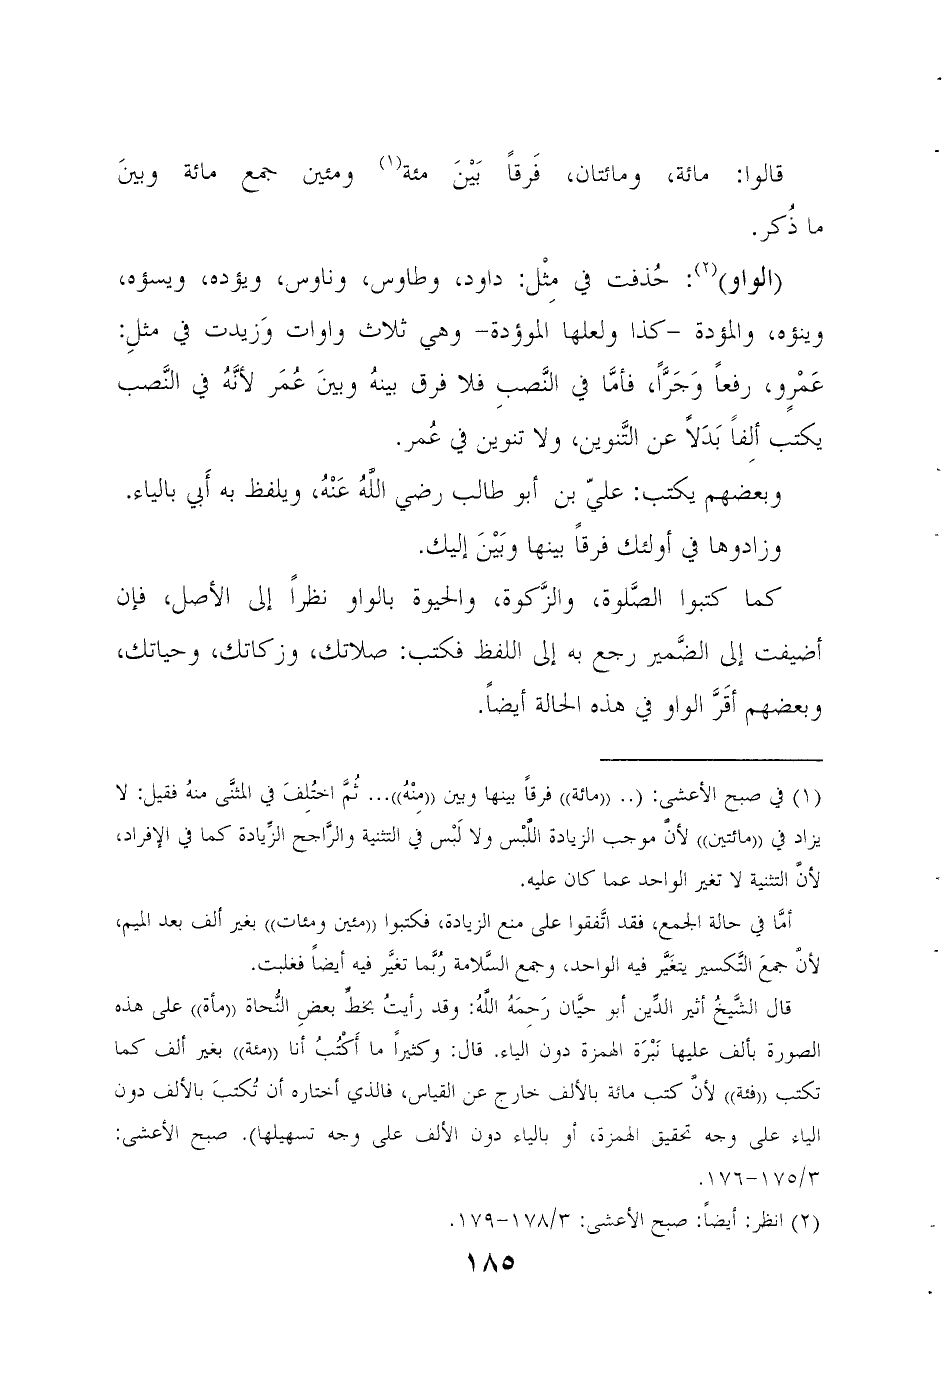 قالوا: مائة، ومائتان، فَرقاً بَيْنَ مئة(١) ومئين جمع مائة وبينَ
ما ذُكر.
(الواو)(٢): حُذفت في مِثْل: داود، وطاوس، وناوس، ويؤده، ويسؤه،
وينؤه، والمؤدة -كذا ولعلها الموؤدة- وهي ثلاث واوات وَزيدت في مثلِ:
عَمْرٍو، رفعاً وَجَرًّا، فأمَّا في النَّصبِ فلا فرق بينهُ وبينَ عُمَر لأنَّهُ في النَّصب
يكتبِ ألفاً بَدَلاً عن التَّنوين، ولا تنوين في عُمر.
وبعضهم يكتب: عليّ بن أبو طالب رضي اللَّهُ عَنْهُ، ويلفظ به أَبي بالياء.
وزادوها في أولئك فرقاً بينها وبَيْنَ إليك.
كما كتبوا الصَّلوة، والزَّكوة، والحيوة بالواو نظراً إلى الأصل، فإن
أضيفت إلى الضَّمير رجع به إلى اللفظ فكتب: صلاتك، وزكاتك، وحياتك،
وبعضهم أقَرَّ الواو في هذه الحالة أيضاً.
(١) في صبح الأعشى: (.. ((مائة)) فرقاً بينها وبين ((مِنْهُ))... ثُمَّ اختُلفَ في المثنَّى منهُ فقيل: لا
يزاد في ((مائتين)) لأنَّ موجب الزيادة اللَّبْس ولا لَبْس في التثنية والرَّاجح الزِّيادة كما في الإفراد،
لأنَّ التثنية لا تغير الواحد عما كان عليه.
أمَّا في حالة الجمع، فقد اتَّفقوا على منع الزيادة، فكتبوا ((مئين ومئات)) بغير ألف بعد الميم،
لأنَّ جمعَ التَّكسير يتغَيَّر فيه الواحد، وجمع السَّلامة رُبَّما تغيَّر فيه أيضاً فغلبت.
قال الشَّيخُ أثير الدِّين أبو حيَّان رَحِمَهُ اللَّهُ: وقد رأيتُ بخطِّ بعضِ النُّحاة ((مأة)) على هذه
الصورة بألف عليها نَبْرَة الهمزة دون الياء. قال: وكثيراً ما أَكْتُبُ أنا ((مئة)) بغير ألف كما
تكتب ((فئة)) لأنَّ كتب مائة بالألف خارج عن القياس، فالذي أختاره أن تُكتبَ بالألف دون
الياء على وجه تحقيق الهمزة، أو بالياء دون الألف على وجه تسهيلها). صبح الأعشى:
٣/١٧٥-١٧٦.
(٢) انظر: أيضاً: صبح الأعشى: ٣/١٧٨-١٧٩.
١٨٥